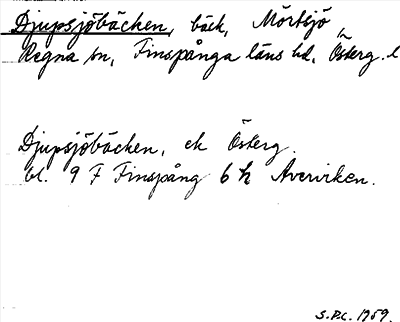 Djupsjöbäcken, bäck, Mörtsjö
Regna sn, Finspånga läns hd, Österg. l
Djupsjöbäcken, ek Österg.
bl. 9 F Finspång 6 h Avervirken.
S.P.C. 1959.